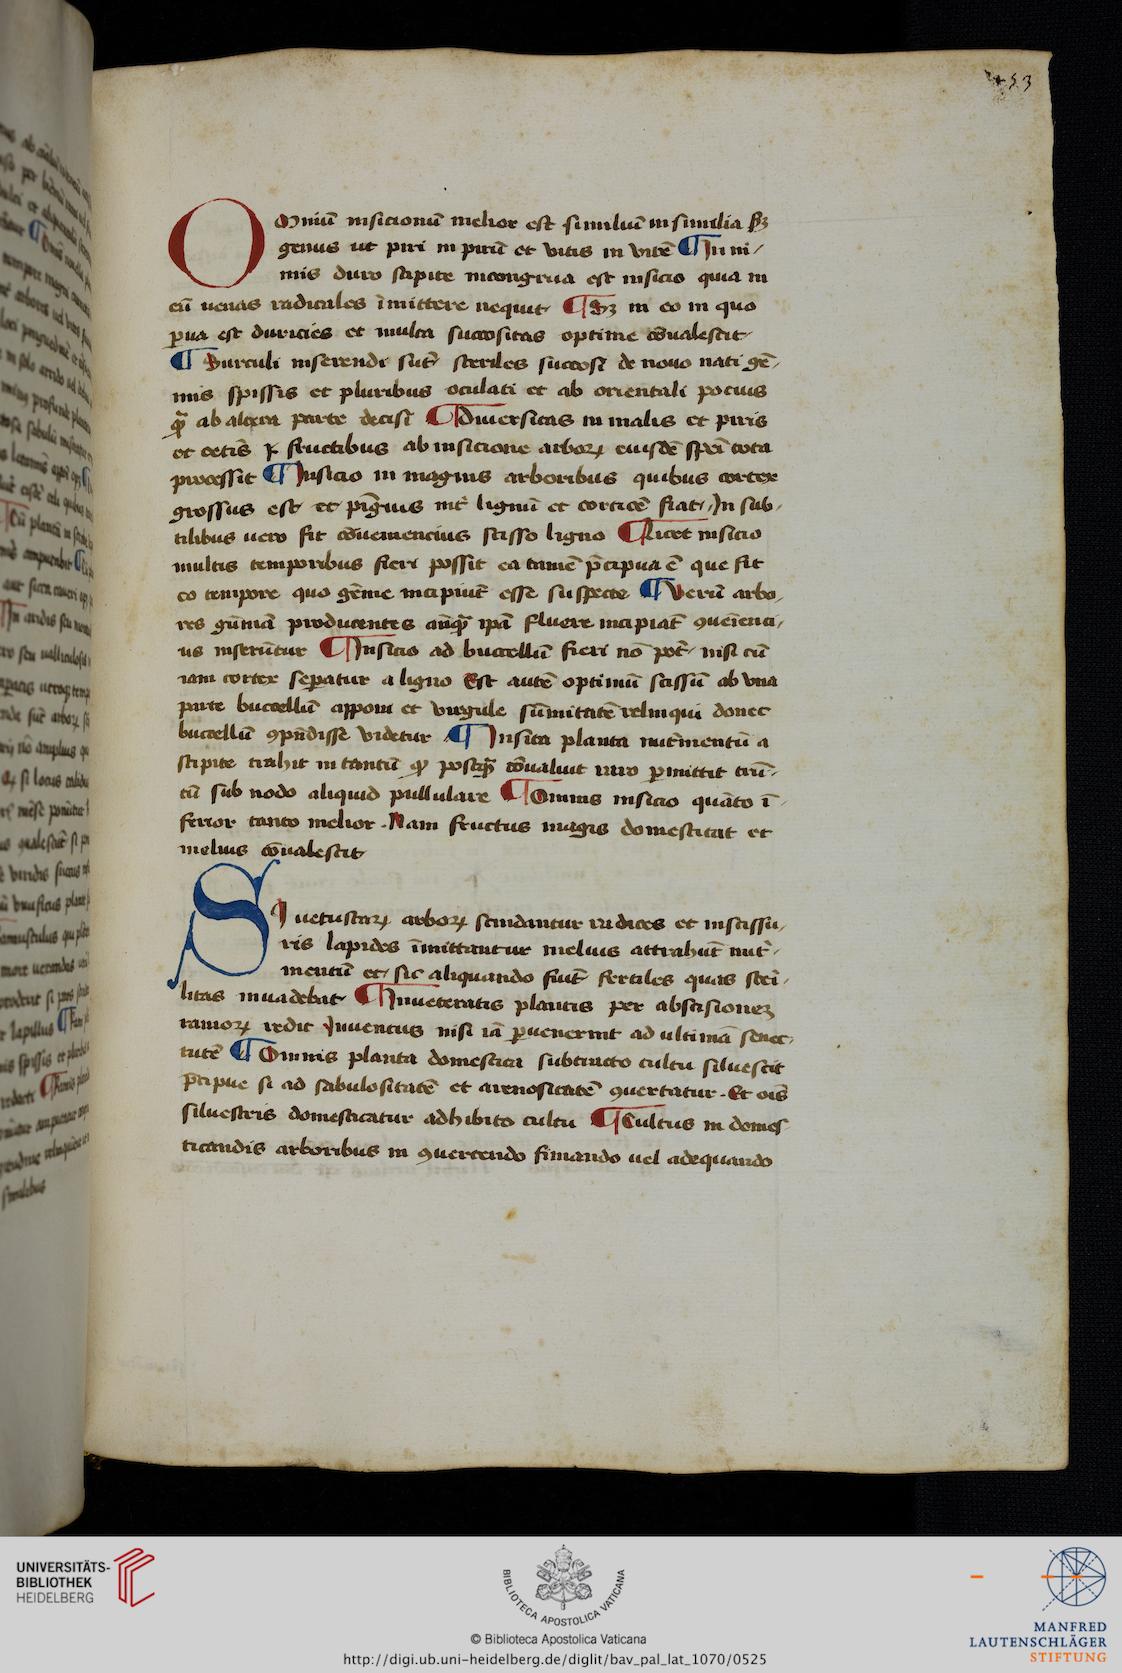 253
Omniū insicionū melior est similiū in similia ẜꝫ
genus ut piri in pirū et vitis in vitē ¶ In ni-
mis duro stipite incongrua est insicio quia in
eū uenas radicales īmittere nequit ¶ Sꝫ in eo in quo
ꝑua est duricies et multa succositas optime cōualescit
¶ Surculi inserendi sūt steriles succosi de nouo nati gē-
mis spissis et pluribus oculati et ab orientali pocius
qᷓ ab altera parte decisi ¶ Diuersitas in malis et piris
et cetis fructibus ab insicione arboꝝ eiusdē spēi tota
processit ¶ Insicio in magnis arboribus quibus cortex
grossus est et piguis int lignū et corticē fiat. In sub-
tilibus uero fit cōueniencius scisso ligno ¶ Licet insicio
multis temporibus fieri possit ea tamē p̄cipua ē que fit
eo tempore quo gēme incipiūt esse suspecte ¶ Verū arbo-
res gūmā producentes anqᷓ ipā fluere incipiat ꝯueiēnci-
us inserūtur ¶ Insicio ad buccellū fieri nō pōt nisi cū
iam cortex sepatur a ligno Est autē optimū scissū ab una
parte buccellū apponi et virgule sūmitatē relinqui donec
buccellū ꝯpn̄disse videtur ¶ Insita planta nut̄mentū a
stipite trahit in tantū ꝙ postqᷓ cōualuit raro ꝑmittit trū-
cū sub nodo aliquid pullulare ¶ Omnis insicio quāto ī-
ferior tanto melior. Nam fructus magis domesticat et
melius cōualescit
Si uetustaꝝ arboꝝ scindantur radices et in scissu-
ris lapides īmittantur melius attrahūt nut-
mentū et sic aliquando fiūt fertiles quas steri-
litas inuadebat ¶ Inueteratis plantis per abscisionez
ramoꝝ redit Iuuentus nisi iā ꝑuenerint ad ultimā senec-
tutē ¶ Omnis planta domestica subtracto cultu siluescit
p̄cipue si ad sabulositatē et arenositatē ꝯuertatur. Et oīs
siluestris domesticatur adhibito cultu ¶ Cultus in domes-
ticandis arboribus in ꝯuertendo fimando uel adequando
UNIVERSITÄTS-
BIBLIOTHEK
HEIDELBERG
BIBLIOTECA APOSTOLICA VATICANA
© Biblioteca Apostolica Vaticana
http://digi.ub.uni-heidelberg.de/diglit/bav_pal_lat_1070/0525
MANFRED
LAUTENSCHLÄGER
STIFTUNG